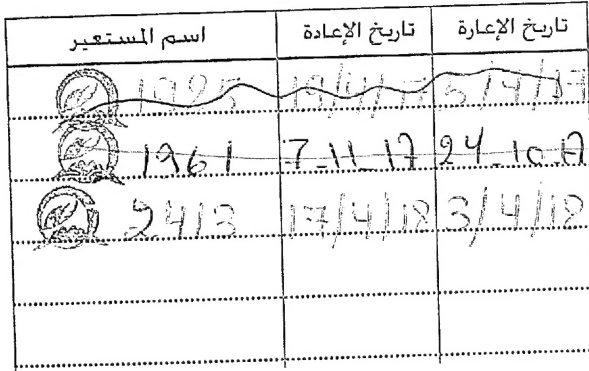 تاريخ الإعارة تاريخ الإعادة اسم المستعير
5/4/17 19/4/17 1925
24.10.17 7-11-17 1961
3/4/18 17/4/18 2413